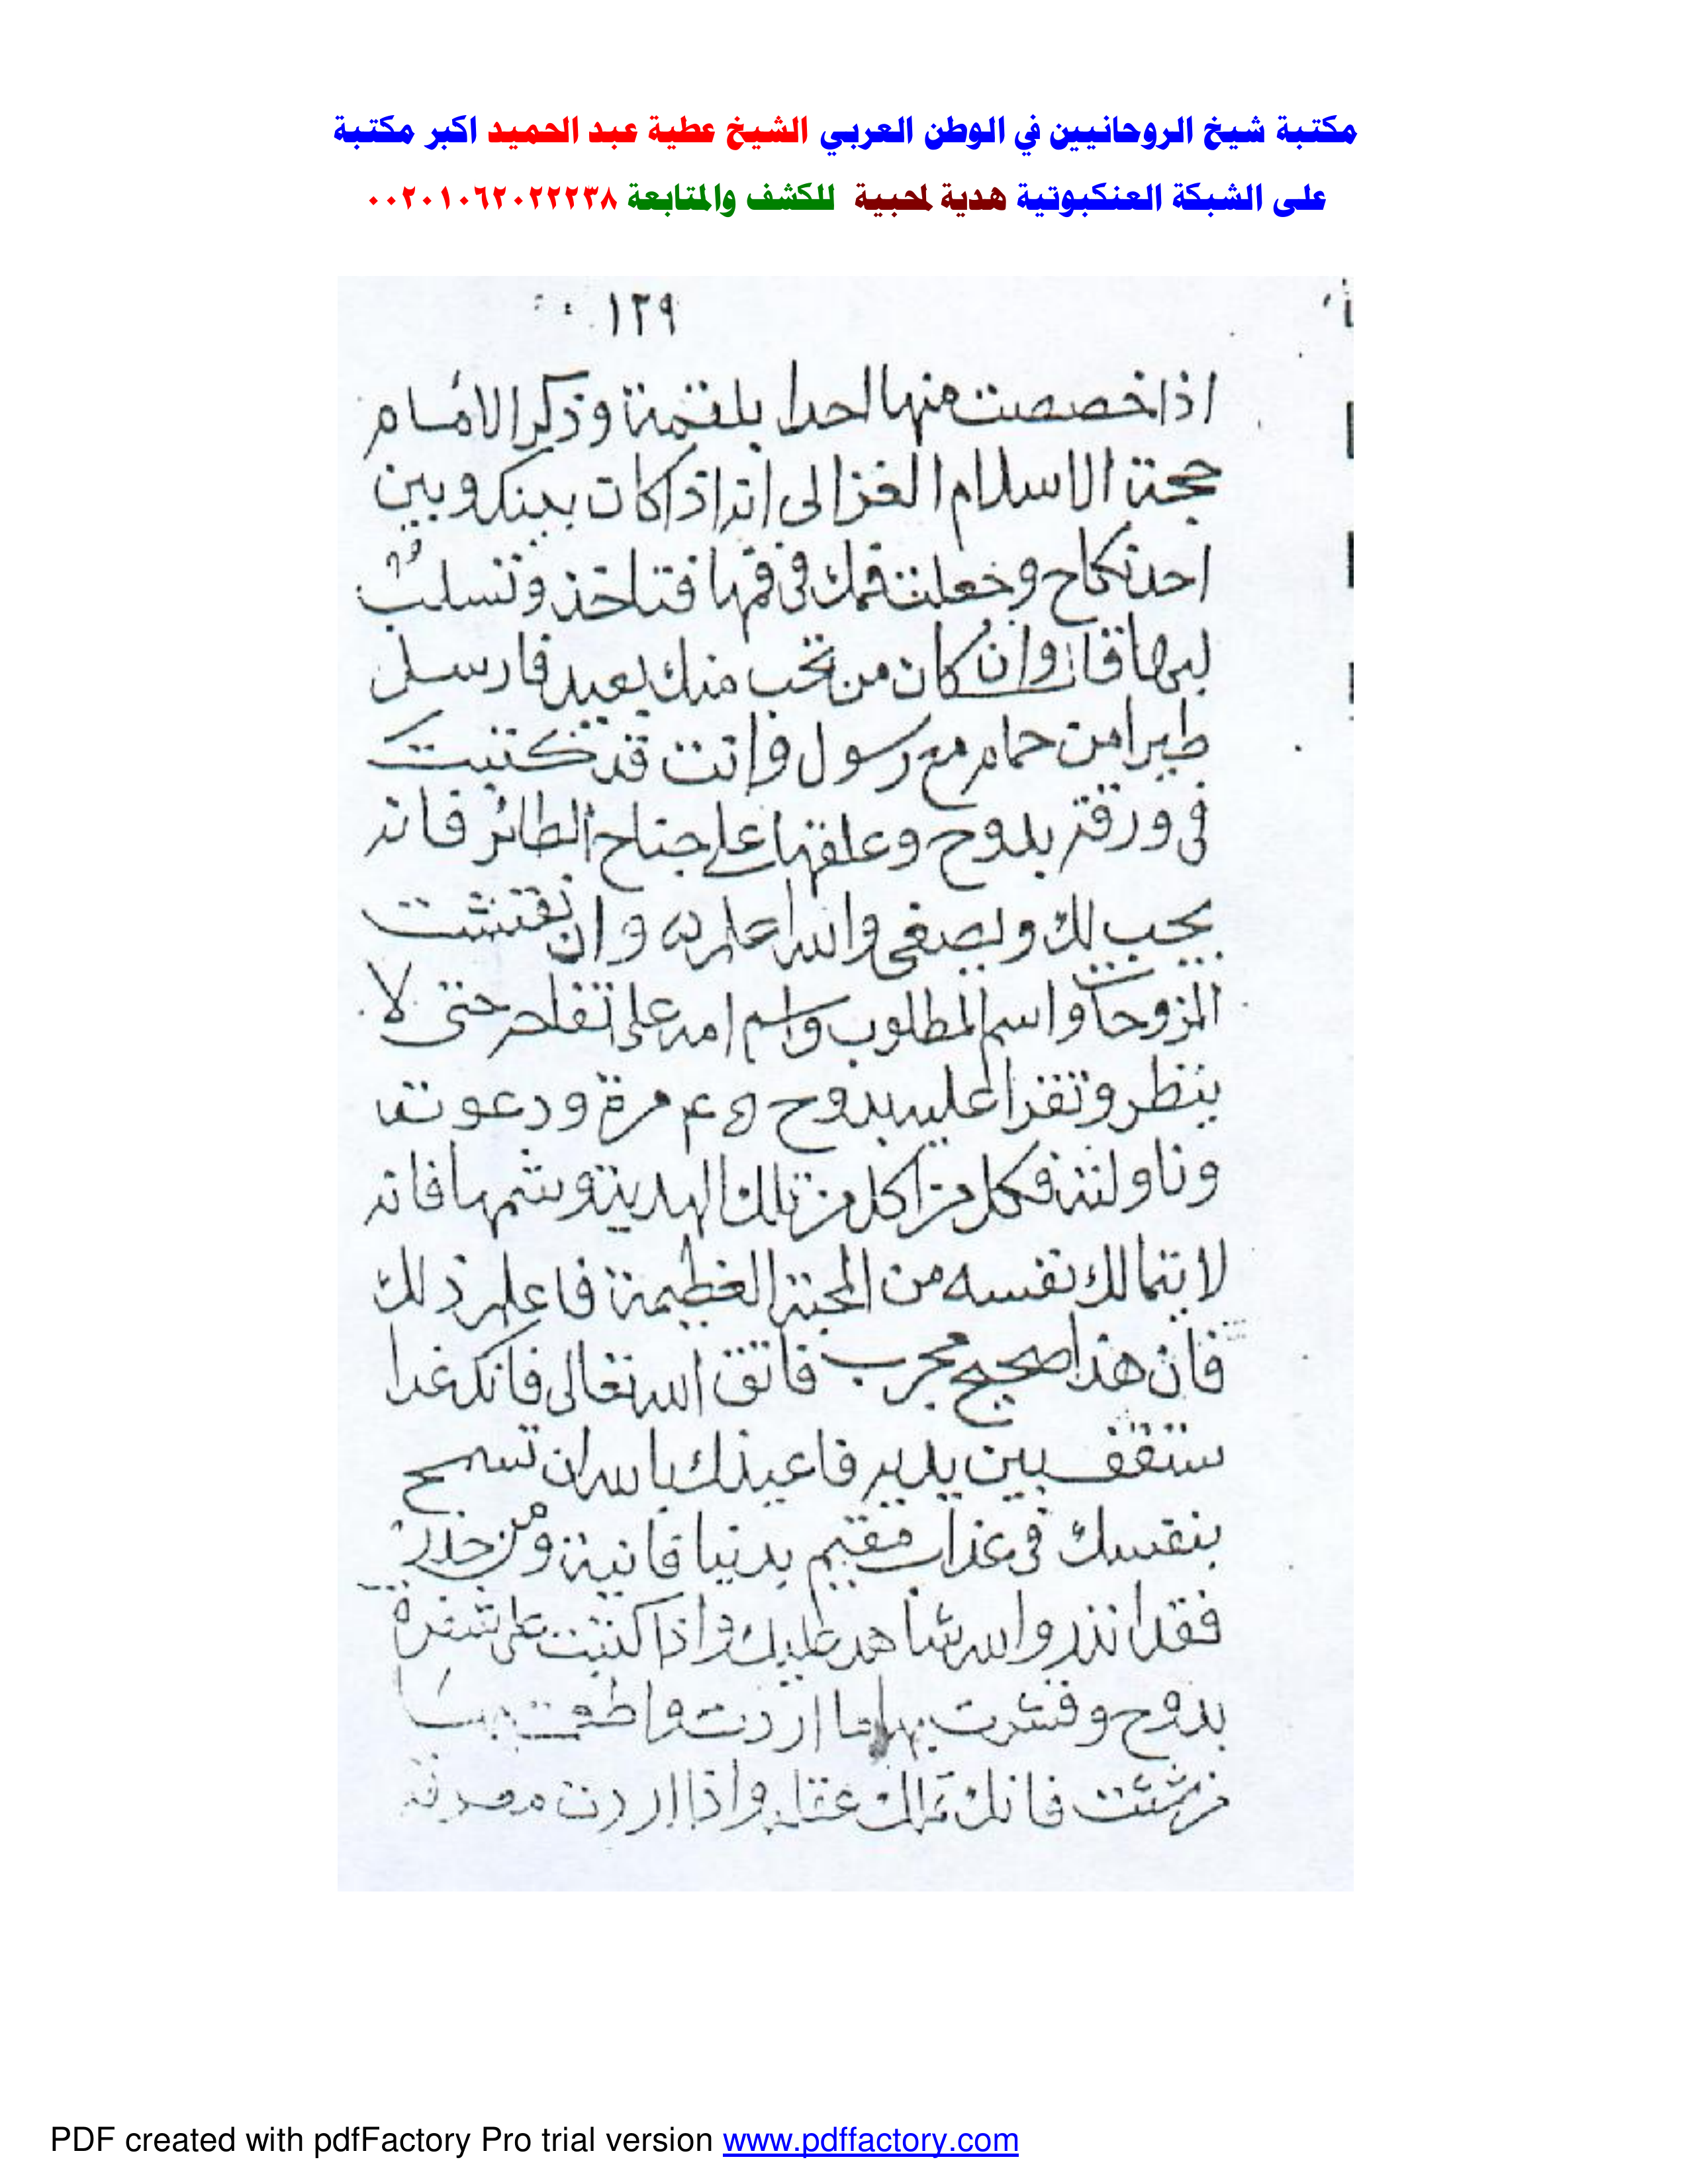 مكتبة شيخ الروحانيين في الوطن العربي الشيخ عطية عبد الحميد اكبر مكتبة
على الشبكة العنكبوتية هدية لمحبية للكشف والمتابعة ٠٠٢٠١٠٦٢٠٢٢٢٣٨
١٢٩
اذا خصصت منها احدا بلقمة وذكر الامام
حجة الاسلام الغزالى انه اذا كان بينك وبين
احد نكاح وجعلت فمك فى فمها فتاخذ وتسلب
لبها وان كان من تحب منك بعيد فارسل
طيرا من حمام مع رسول وانت قد كتبت
فى ورقة بدوح وعلقتها على جناح الطائر فانه
يجب لك ويصغى والله اعلم وان نقشت
المزوحات واسم المطلوب واسم امه على تفاحة حتى لا
ينظر وتقرا عليه بدوح ٤٥ مرة ودعوته
وناولته فكل من اكل من تلك الهدية وشمها فانه
لا يتمالك نفسه من المحبة العظيمة فاعلم ذلك
فان هذا صحيح مجرب فاتق الله تعالى فانك غدا
ستقف بين يديه فاعيذك بالله ان تسمح
بنفسك فى عذاب مقيم بدنيا فانية ومن حذرك
فقد انذر والله شاهد عليك واذا كتبت على شفرة
بدوح وقشرت بها ما اردت واطعمت بها
من شئت فانك تملك عقله واذا اردت معرفة
PDF created with pdfFactory Pro trial version www.pdffactory.com